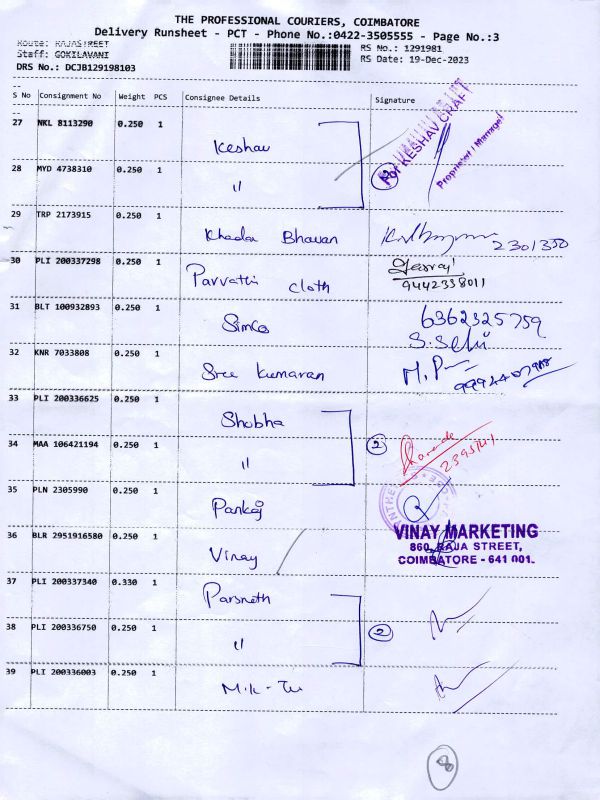 THE PROFESSIONAL COURIERS, COIMBATORE
Delivery Runsheet - PCT - Phone No.:0422-3505555 - Page No.:3
Route: RAJASTREET
Staff: GOKILAVANI
DRS No.: DCJB129198103
RS No.: 1291981
RS Date: 19-Dec-2023
S No Consignment No Weight PCS Consignee Details Signature
27 NKL 8113290 0.250 1 Keshav
For KESHAV CRAFT
Proprietor / Manager
28 MYD 4738310 0.250 1 " 2
29 TRP 2173915 0.250 1 Khadar Bhavan 2301350
30 PLI 200337298 0.250 1 Parvathi cloth
9442338011
31 BLT 100932893 0.250 1 Simco 6362325759
S. Selvi
32 KNR 7033808 0.250 1 Sree Kumaran M.P
33 PLI 200336625 0.250 1 Shobha
34 MAA 106421194 0.250 1 " 2
35 PLN 2305990 0.250 1 Pankaj
36 BLR 2951916580 0.250 1 Vinay
VINAY MARKETING
860, RAJA STREET,
COIMBATORE - 641 001.
37 PLI 200337340 0.330 1 Parsnath
38 PLI 200336750 0.250 1 " 2
39 PLI 200336003 0.250 1 M.K-Tex
8